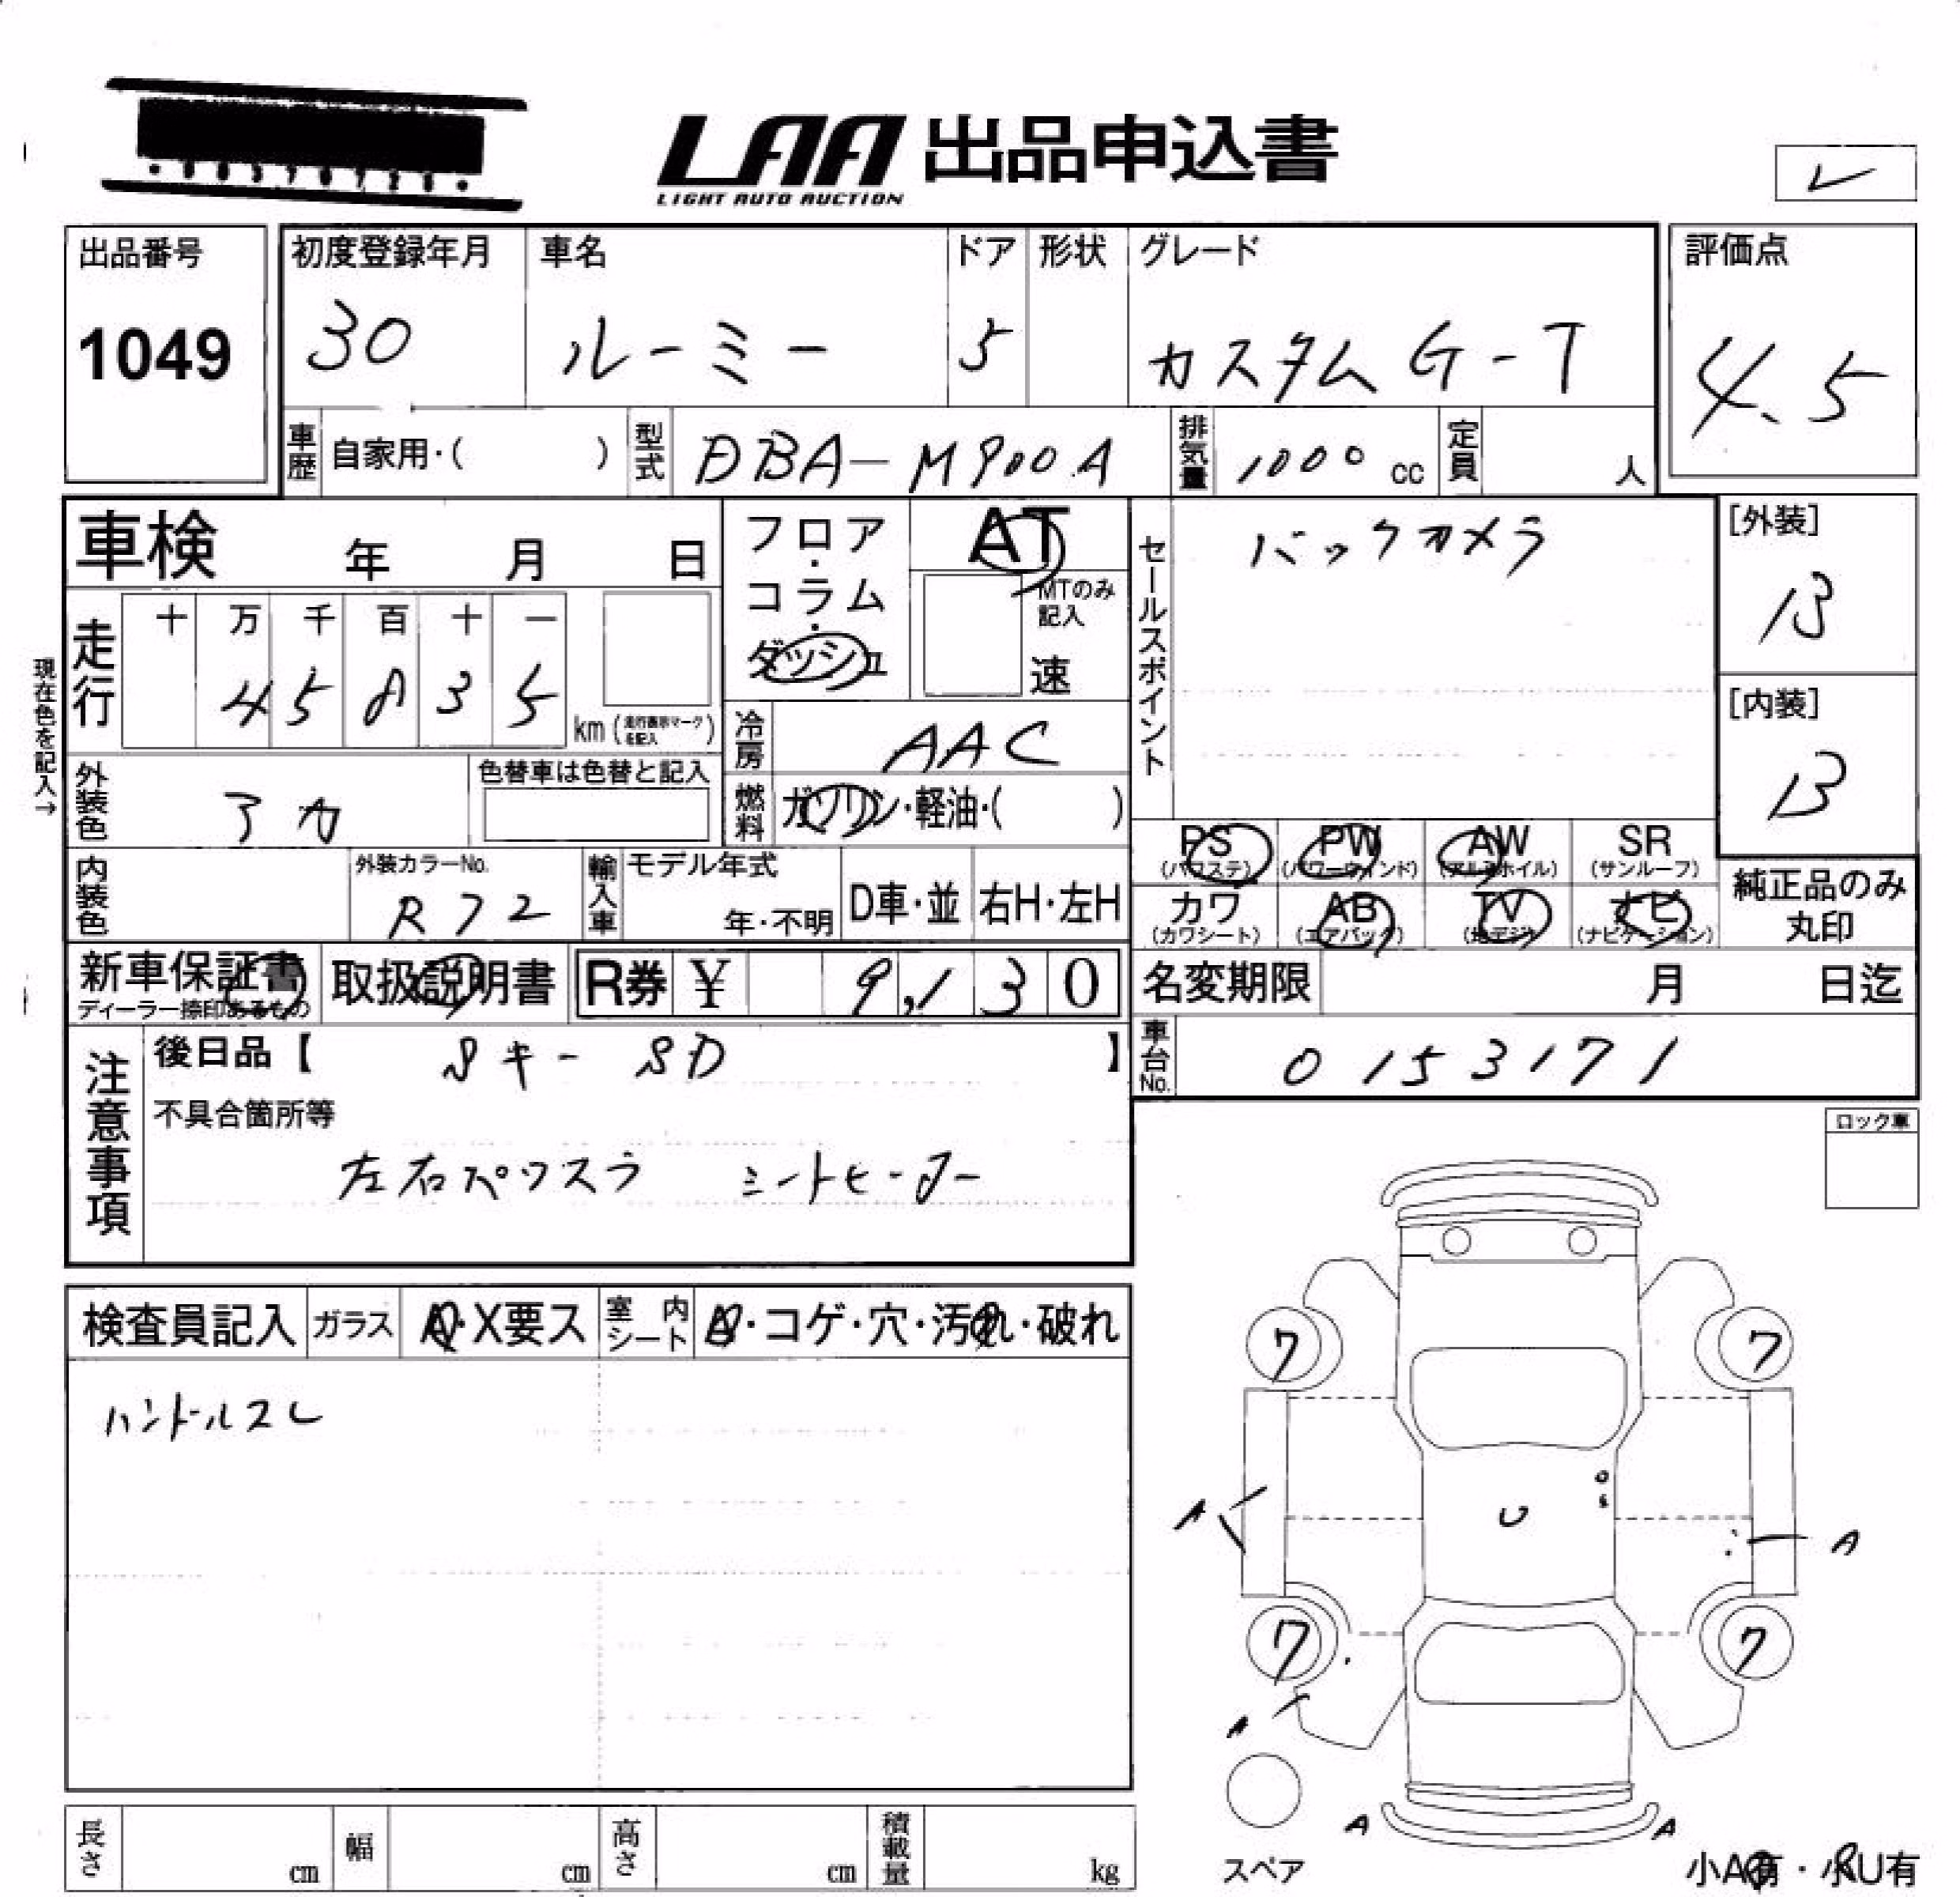 LAA 出品申込書
LIGHT AUTO AUCTION
レ
出品番号
1049
初度登録年月 車名 ドア 形状 グレード
30 ルーミー 5 カスタム G-T
評価点
4.5
車歴 自家用・( ) 型式 DBA-M900A 排気量 1000 cc 定員 人
車検 年 月 日
フロア・コラム・ダッシュ
AT
MTのみ記入
速
セールスポイント
バックカメラ
[外装]
B
[内装]
B
現在色を記入→
走行 十 万 千 百 十 一
4 5 8 3 5 km (走行表示マークを記入)
冷房 AAC
外装色 アカ
色替車は色替と記入
燃料 ガソリン・軽油・( )
PS (パワステ) PW (パワーウインド) AW (アルミホイル) SR (サンルーフ)
カワ (カワシート) AB (エアバック) TV (地デジ) ナビ (ナビゲーション)
純正品のみ丸印
内装色
外装カラーNo.
R72
輸入車 モデル年式
年・不明
D車・並 右H・左H
新車保証書
ディーラー捺印あるもの
取扱説明書
R券 ¥ 9,130
名変期限 月 日迄
車台No. 0153171
注意事項
後日品【 Sキー SD 】
不具合箇所等
左右パワスラ シートヒーター
ロック車
検査員記入 ガラス A・X要ス 室内シート A・コゲ・穴・汚れ・破れ
ハンドルスレ
ワ ワ
A U A
ワ ワ
A
A A
スペア
小A有・小U有
長さ cm 幅 cm 高さ cm 積載量 kg